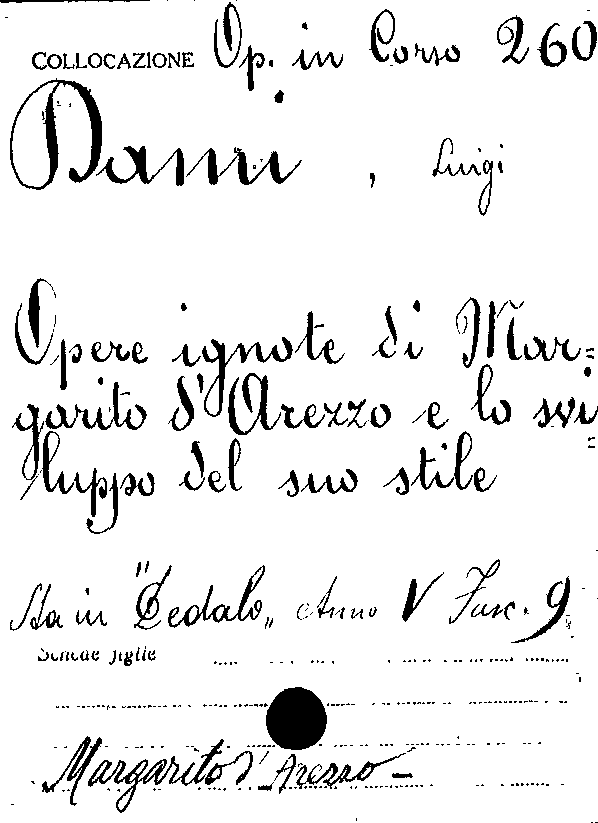 COLLOCAZIONE Op. in Corso 260
Dami, Luigi
Opere ignote di Mar=
garito d'Arezzo e lo svi
=
luppo del suo stile
Sta in "Dedalo„ Anno V Fasc. 9
Schede figlie
Margarito d'Arezzo –